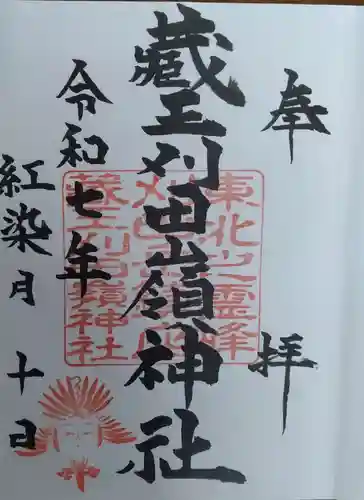 奉拝
蔵王刈田嶺神社
令和七年
紅染月十日
東北之霊峰
蔵王刈田嶺神社